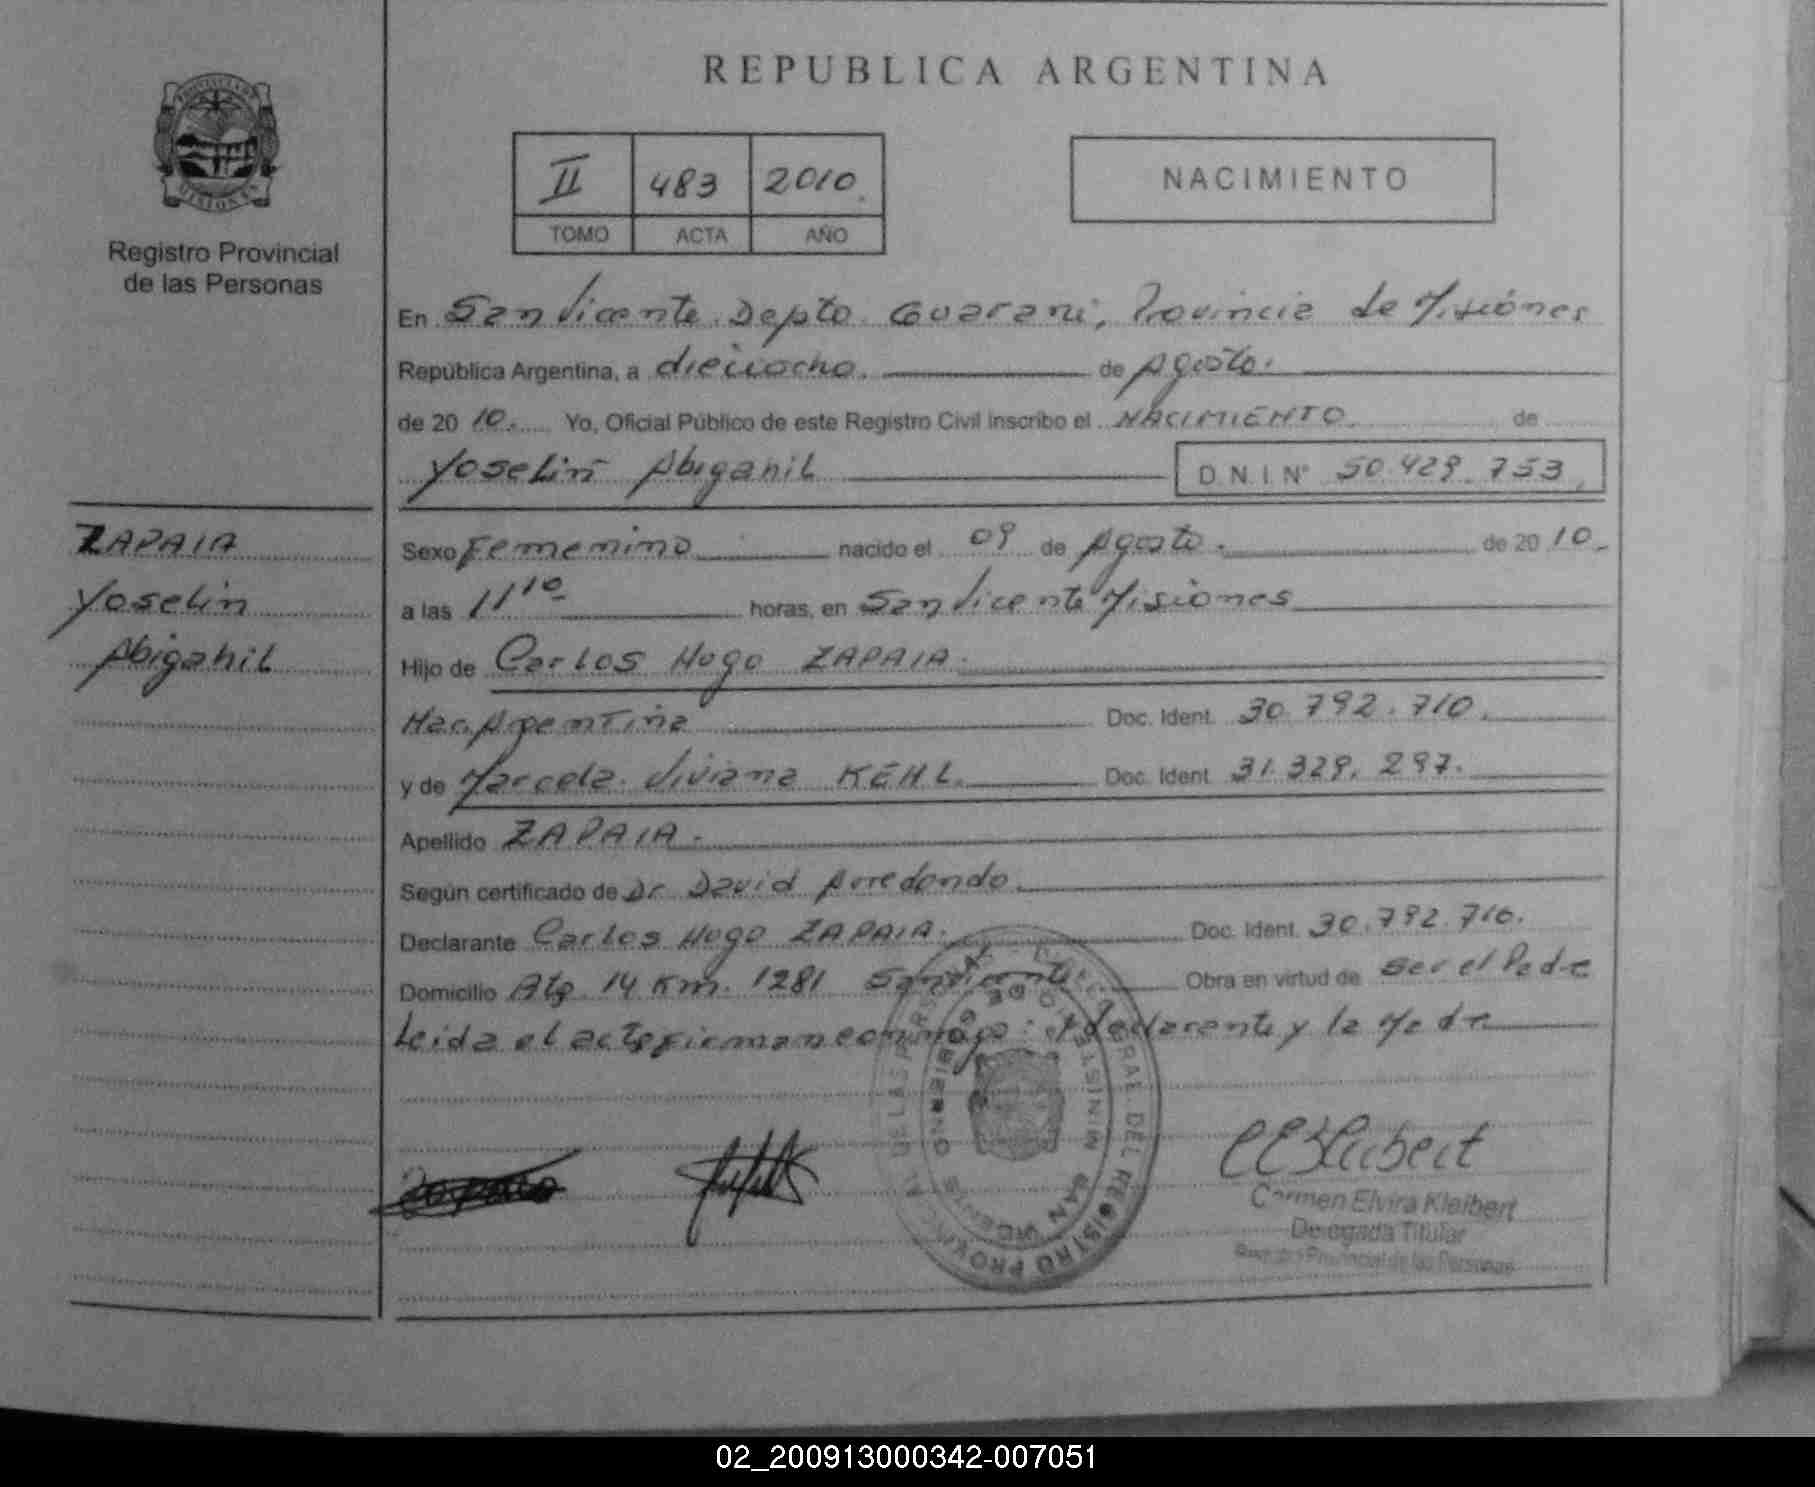 REPUBLICA ARGENTINA
PROVINCIA DE MISIONES
Registro Provincial
de las Personas
II 483 2010
TOMO ACTA AÑO
NACIMIENTO
En San Vicente Depto Guarani, Provincia de Misiones
República Argentina, a dieciocho. de Agosto.
de 20 10. Yo, Oficial Público de este Registro Civil inscribo el NACIMIENTO de
Yoselin Abigahil D.N.I. N° 50.429.753
ZAPAIA
Yoselin
Abigahil
Sexo Femenino nacido el 09 de Agosto. de 20 10.
a las 11 10 horas, en San Vicente Misiones
Hijo de Carlos Hugo ZAPAIA.
Nac. Argentina Doc. Ident. 30.792.710.
y de Marcela Viviana KEHL. Doc. Ident. 31.329.297.
Apellido ZAPAIA.
Según certificado de Dr David Arredondo.
Declarante Carlos Hugo ZAPAIA. Doc. Ident. 30.792.710.
Domicilio Km. 1281 San Vicente Obra en virtud de ser el Padre
Leida el acta firman conmigo: el declarante y la Madre
MINISTERIO DE GOBIERNO
SAN VICENTE
Carmen Elvira Kleibert
Delegada Titular
Registro Provincial de las Personas
02_200913000342-007051